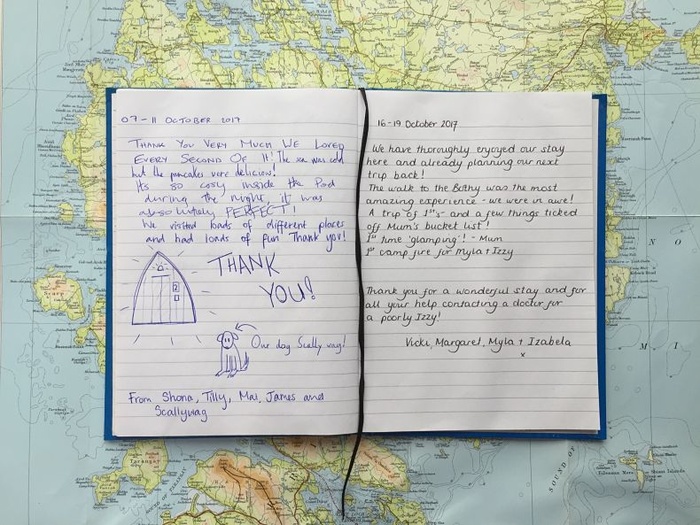 07-11 OCTOBER 2017
THANK YOU VERY MUCH WE LOVED
EVERY SECOND OF IT! The sea was cold
but the pancakes were delicious!
Its so cosy inside the Pod
during the night it was
absolutely PERFECT!
We visited loads of different places
and had loads of fun Thank you!
THANK
YOU!
Our dog Scally wag!
From Shona, Tilly, Mai, James and
Scallywag
16-19 October 2017
We have thoroughly enjoyed our stay
here and already planning our next
trip back!
The walk to the Bothy was the most
amazing experience - we were in awe!
A trip of 1st's and a few things ticked
off Mum's bucket list!
1st time 'glamping'! - Mum
1st camp fire for Myla + Izzy
Thank you for a wonderful stay and for
all your help contacting a doctor for
a poorly Izzy!
Vicki, Margaret, Myla + Izabela
x
Scarp
SOUND OF